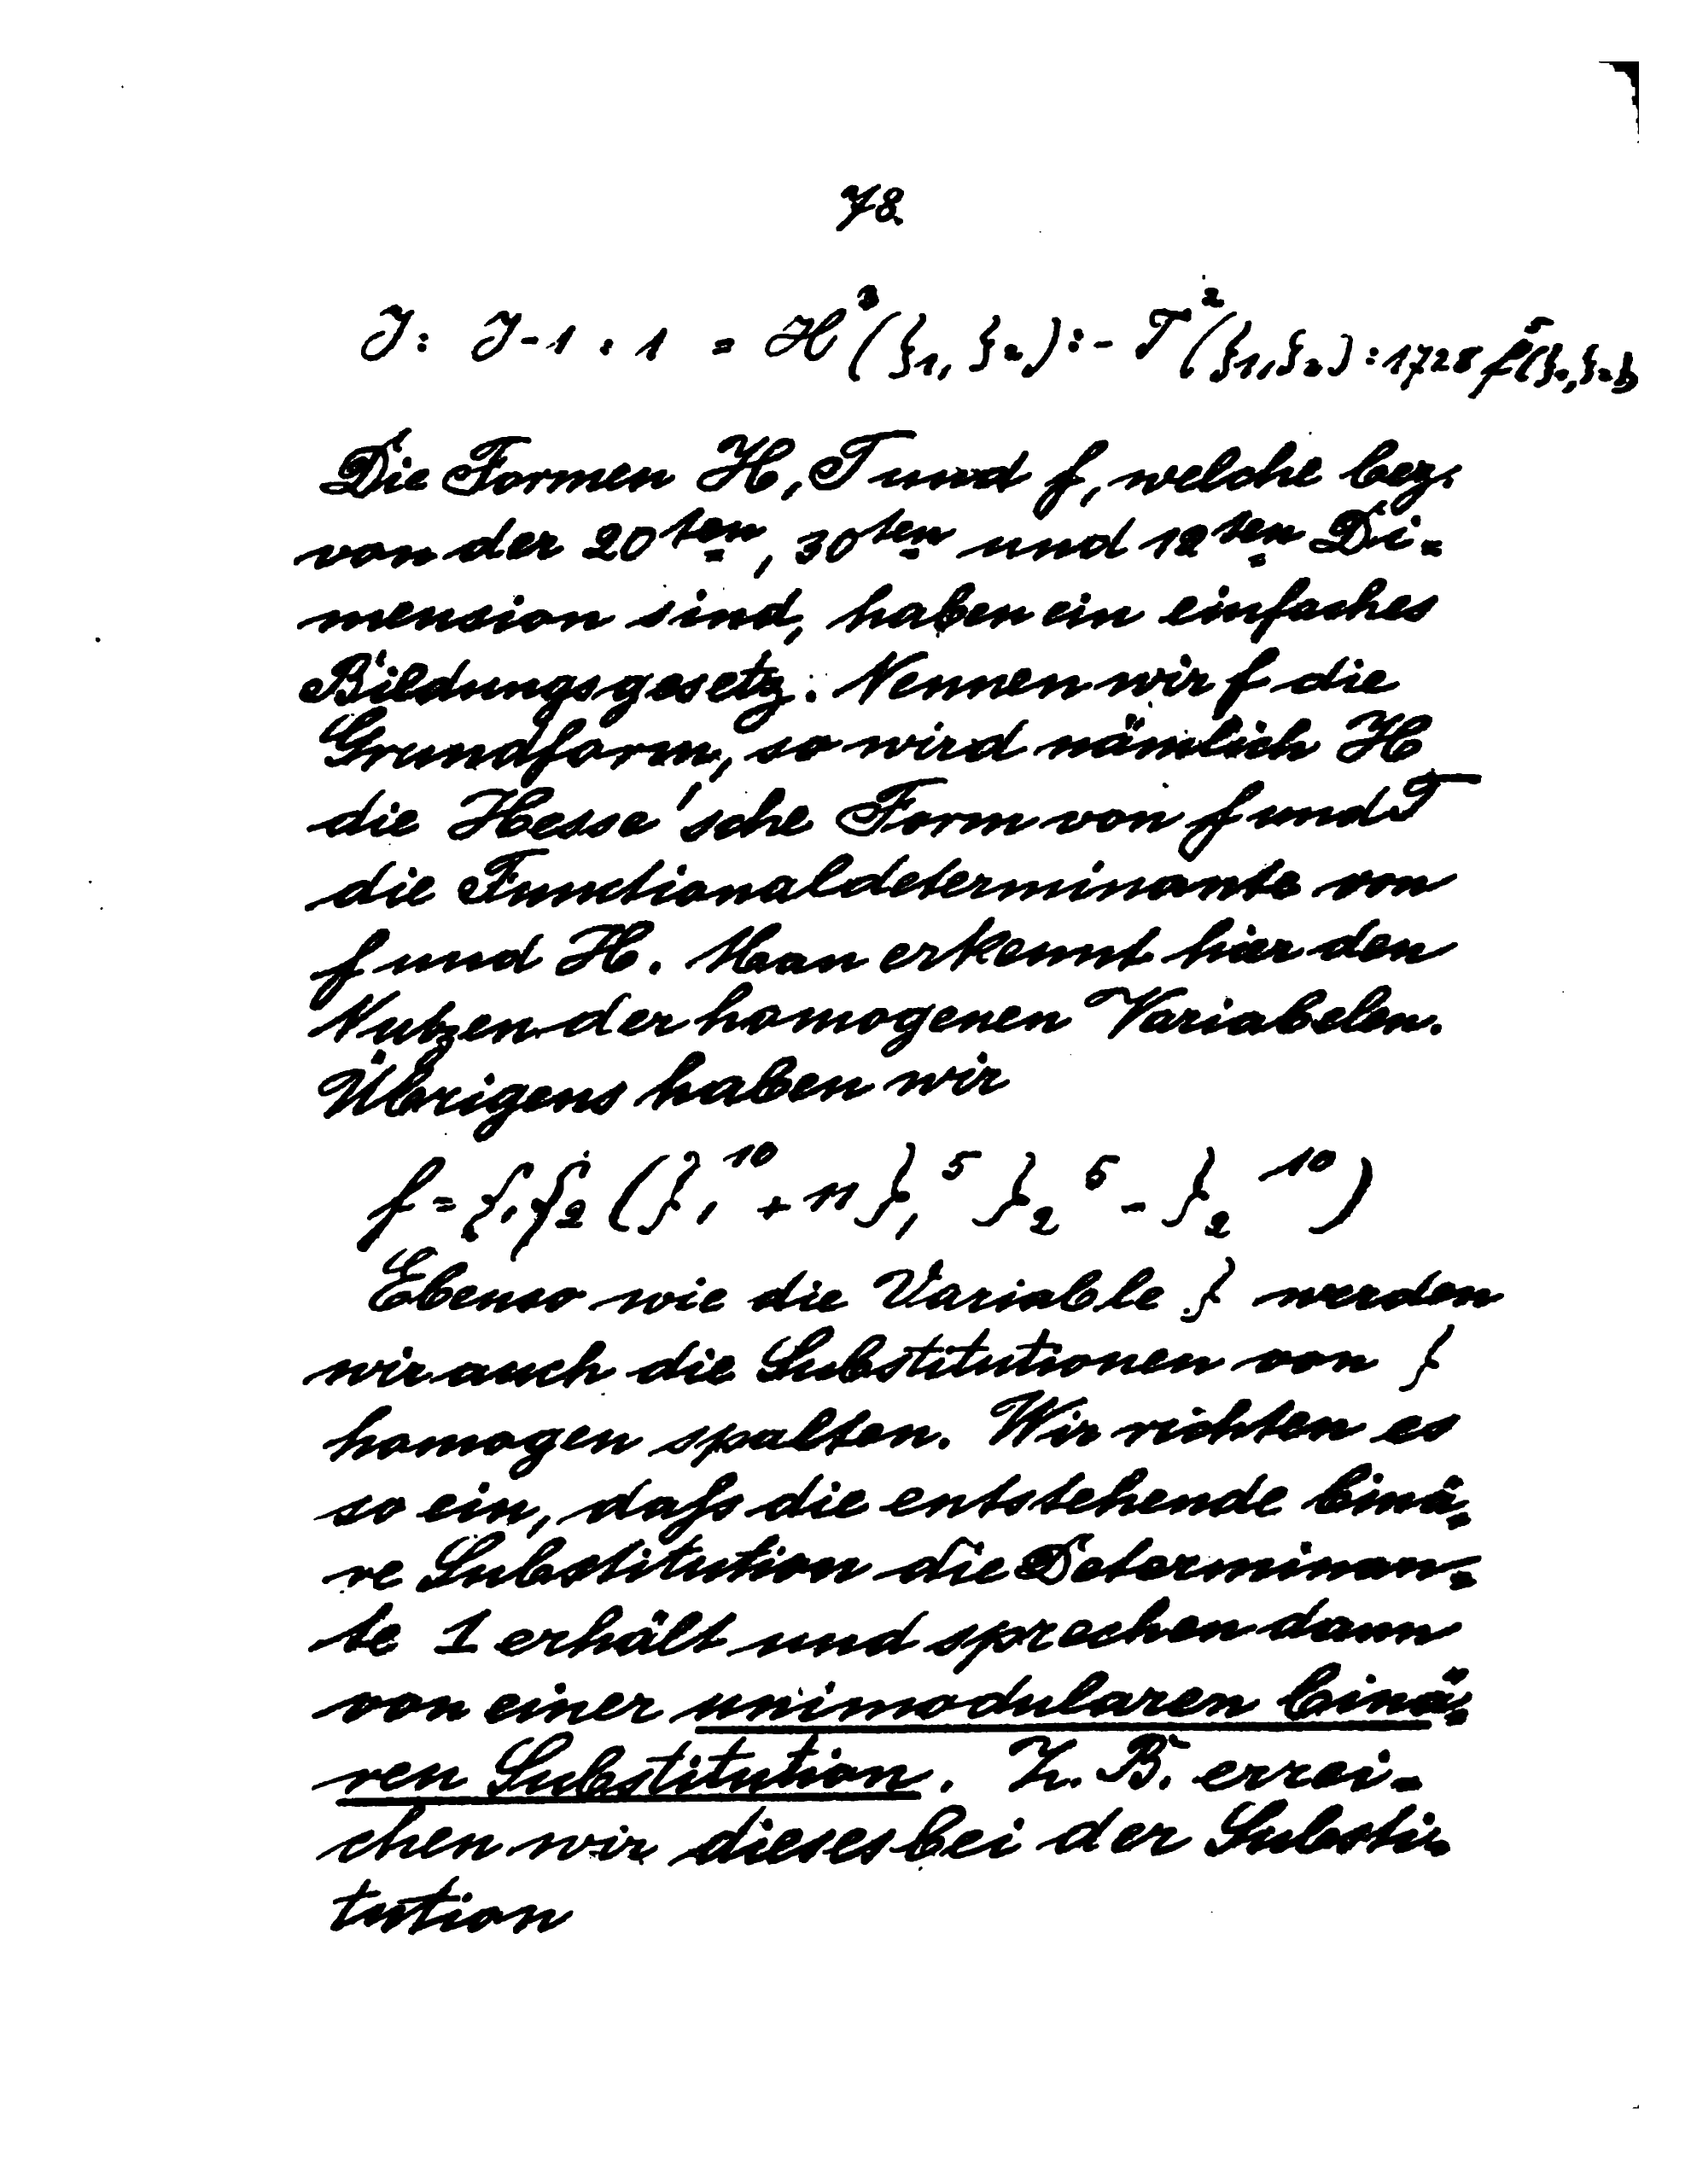 78.
J : J-1 : 1 = H³(ζ₁, ζ₂) : - T²(ζ₁, ζ₂) : 1728 f⁵(ζ₁, ζ₂)
Die Formen H, T und f, welche bez.
von der 20ten, 30ten und 12ten Di-
mension sind, haben ein einfaches
Bildungsgesetz. Nennen wir f die
Grundform, so wird nämlich H
die Hesse'sche Form von f und T
die Functionaldeterminante von
f und H. Man erkennt hier den
Nutzen der homogenen Variabelen.
Übrigens haben wir
f = ζ₁ζ₂ (ζ₁¹⁰ + 11 ζ₁⁵ ζ₂⁵ - ζ₂¹⁰)
Ebenso wie die Variable ζ werden
wir auch die Substitutionen von ζ
homogen spalten. Wir richten es
so ein, daſs die entstehende binä-
re Substitution die Determinan-
te 1 erhält und sprechen dann
von einer unimodularen binä-
ren Substitution. Z. B. errei-
chen wir dieses bei der Substi-
tution